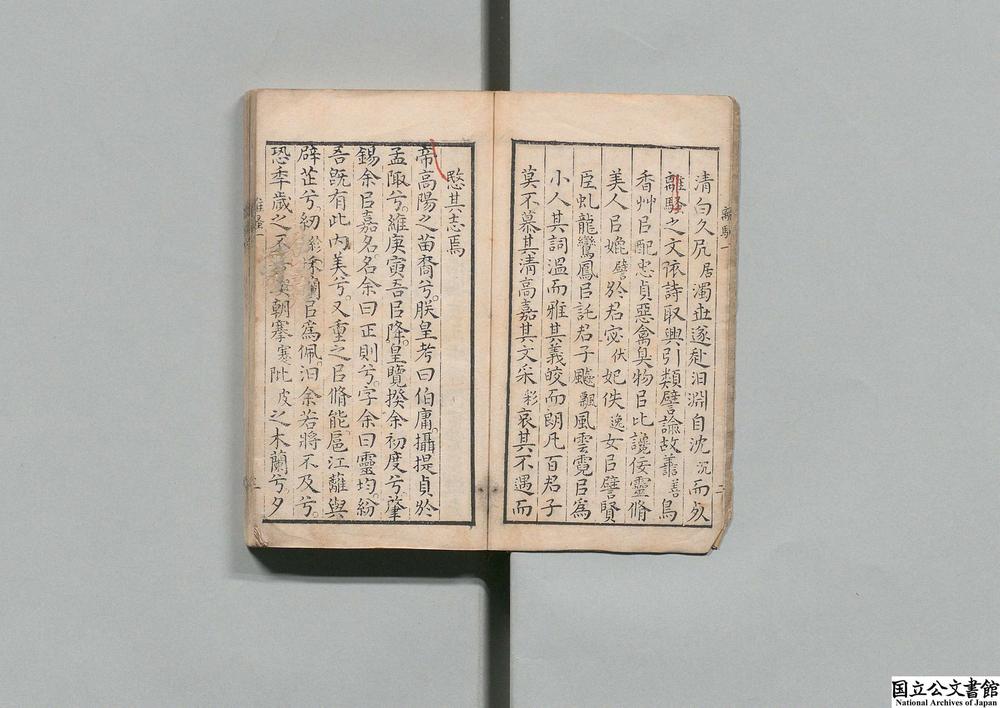 離騷一
清白久凥居濁丗遂赴汨淵自沈沉而死
離騷之文依詩取興引類譬諭故譱善鳥
香艸㠯配忠貞惡禽臭物㠯比讒佞靈脩
美人㠯媲譬於君宓伏妃佚逸女㠯譬賢
臣虬龍鸞鳳㠯託君子飈飄風雲霓㠯爲
小人其詞溫而雅其義皎而朗凡百君子
莫不慕其清高嘉其文采彩哀其不遇而
愍其志焉
帝高陽之苗裔兮朕皇考曰伯庸攝提貞於
孟陬兮維庚寅吾㠯降皇覽揆余初度兮肇
錫余㠯嘉名名余曰正則兮字余曰靈均紛
吾旣有此內美兮又重之㠯脩能扈江蘺與
辟芷兮紉秋蘭㠯爲佩汨余若將不及兮
恐秊歲之不吾與朝搴蹇阰皮之木蘭兮夕
国立公文書館
National Archives of Japan